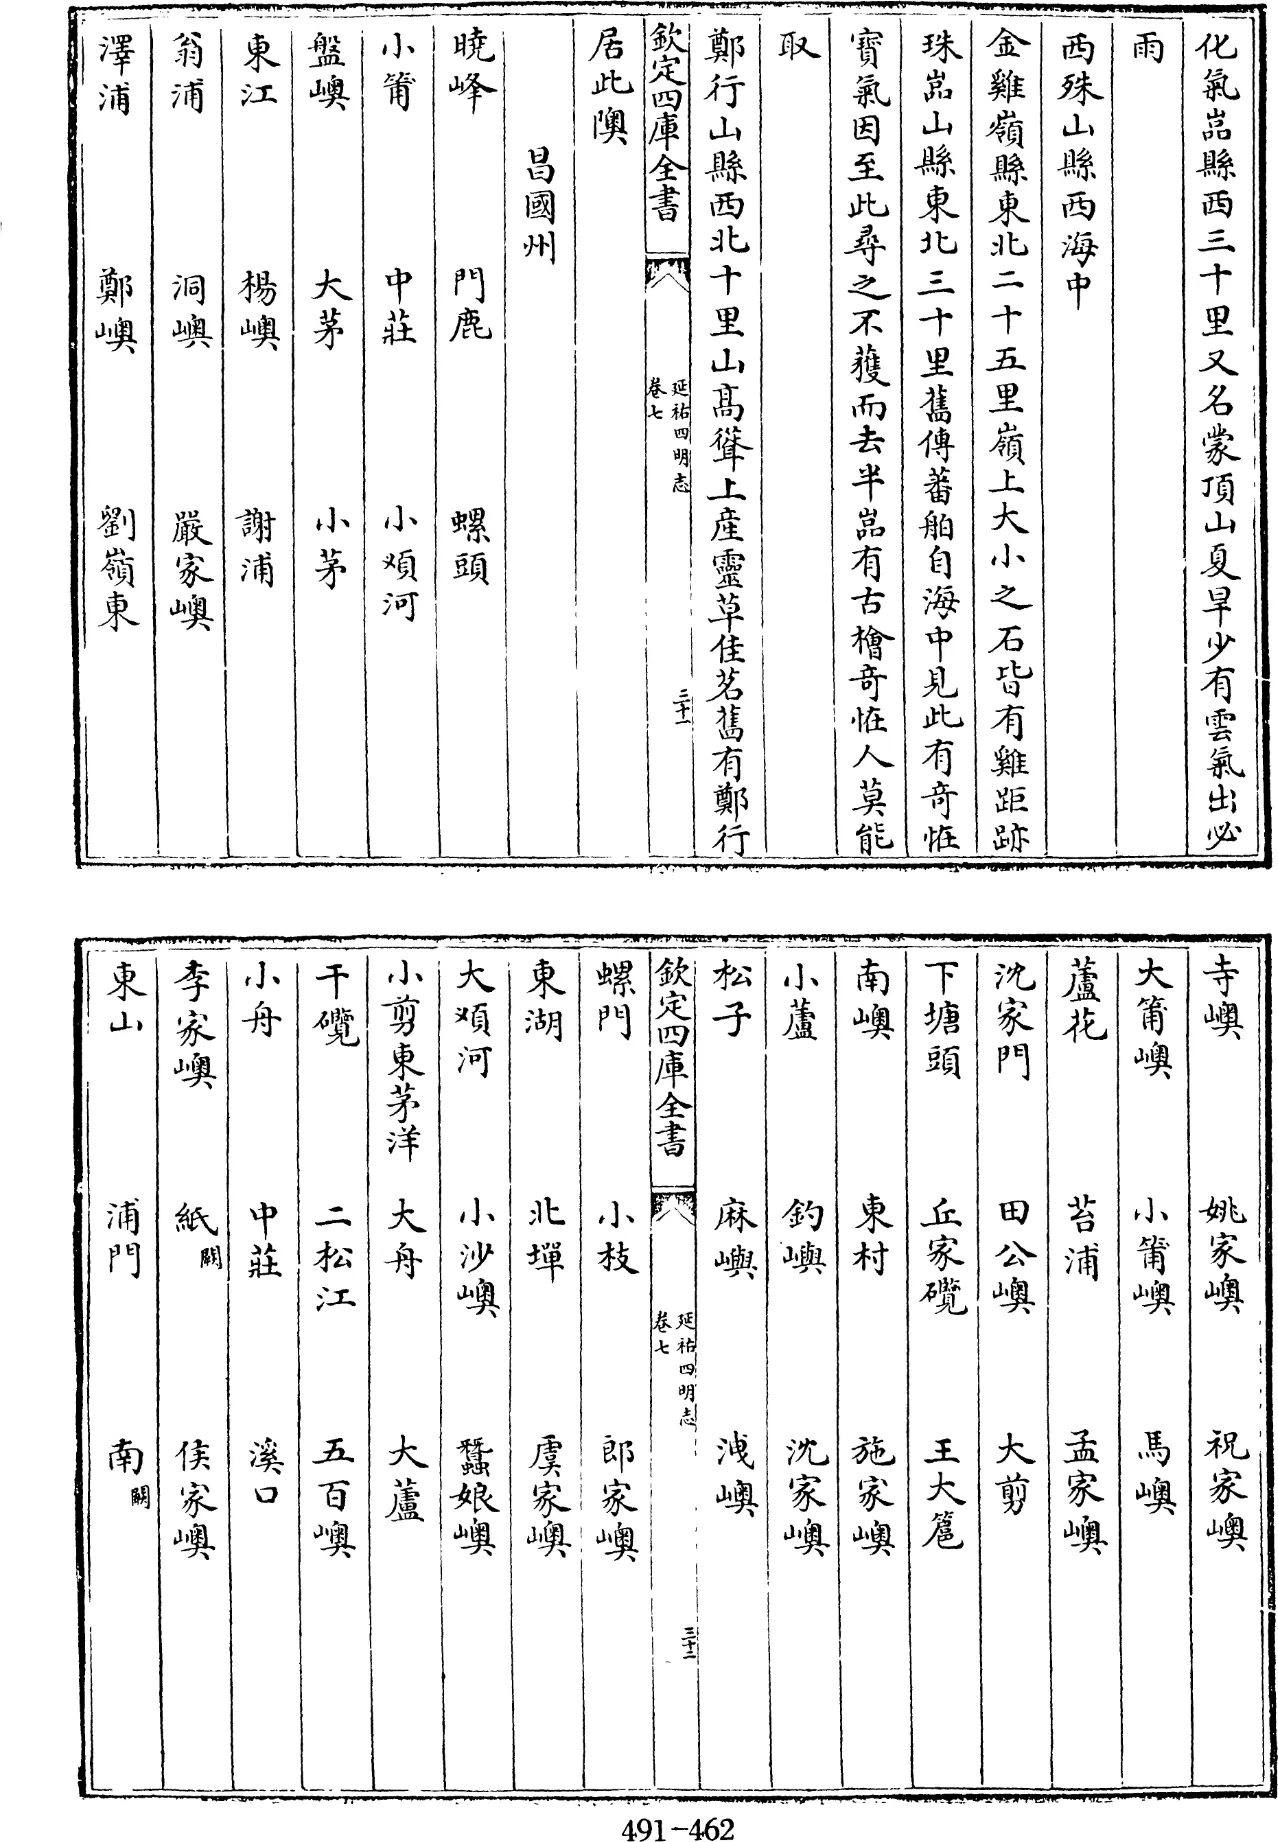 化氣嵓縣西三十里又名蒙頂山夏旱少有雲氣出必
雨
西殊山縣西海中
金雞嶺縣東北二十五里嶺上大小之石皆有雞距跡
珠嵓山縣東北三十里舊傳蕃舶自海中見此有竒恠
寳氣因至此尋之不獲而去半嵓有古檜竒恠人莫能
取
鄭行山縣西北十里山髙聳上産靈草佳茗舊有鄭行
欽定四庫全書
延祐四明志
卷七
三十一
居此隩
昌國州
曉峰 門鹿 螺頭
小莆 中莊 小㳬河
盤嶴 大茅 小茅
東江 楊嶴 謝浦
翁浦 洞嶴 嚴家嶴
澤浦 鄭嶴 劉嶺東
寺嶴 姚家嶴 祝家嶴
大莆嶴 小莆嶴 馬嶴
蘆花 苔浦 孟家嶴
沈家門 田公嶴 大剪
下塘頭 丘家礮 王大篦
南嶴 東村 施家嶴
小蘆 釣嶼 沈家嶴
松子 麻嶼 洩嶴
欽定四庫全書
延祐四明志
卷七
三十二
螺門 小枝 郎家嶴
東湖 北墠 虞家嶴
大㳬河 小沙嶴 蠶娘嶴
小剪東茅洋 大舟 大蘆
干礮 二松江 五百嶴
小舟 中莊 溪口
李家嶴 紙闕 侯家嶴
東山 浦門 南闕
491-462